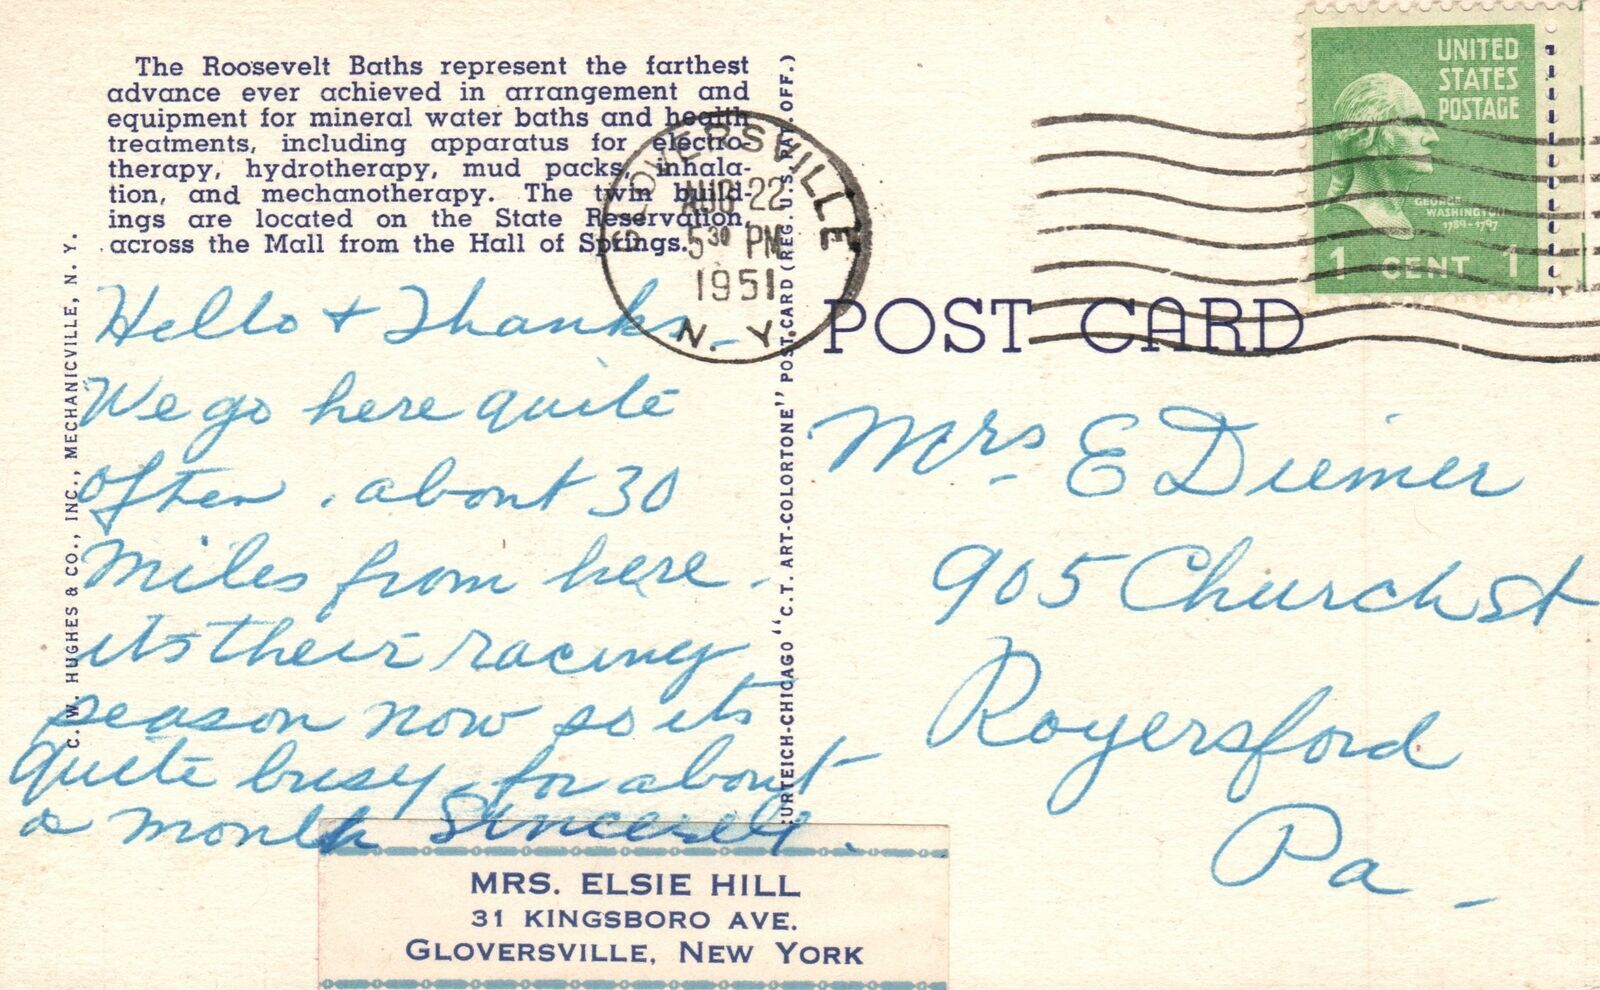 The Roosevelt Baths represent the farthest
advance ever achieved in arrangement and
equipment for mineral water baths and health
treatments, including apparatus for electro-
therapy, hydrotherapy, mud packs, inhala-
tion, and mechanotherapy. The twin build-
ings are located on the State Reservation,
across the Mall from the Hall of Springs.
C. W. HUGHES & CO., INC., MECHANICVILLE, N. Y.
Hello & Thanks_
We go here quite
often . about 30
miles from here.
its their racing
season now so its
quite busy for about
a month Sincerely.
MRS. ELSIE HILL
31 KINGSBORO AVE.
GLOVERSVILLE, NEW YORK
URTEICH-CHICAGO "C.T. ART-COLORTONE" POST CARD (REG. U.S. PAT. OFF.)
GLOVERSVILLE
AUG 22
5 30 PM
1951
N. Y.
UNITED
STATES
POSTAGE
GEORGE
WASHINGTON
1789-1797
1 CENT 1
POST CARD
Mrs E Diemer
905 Church St
Royersford
Pa_